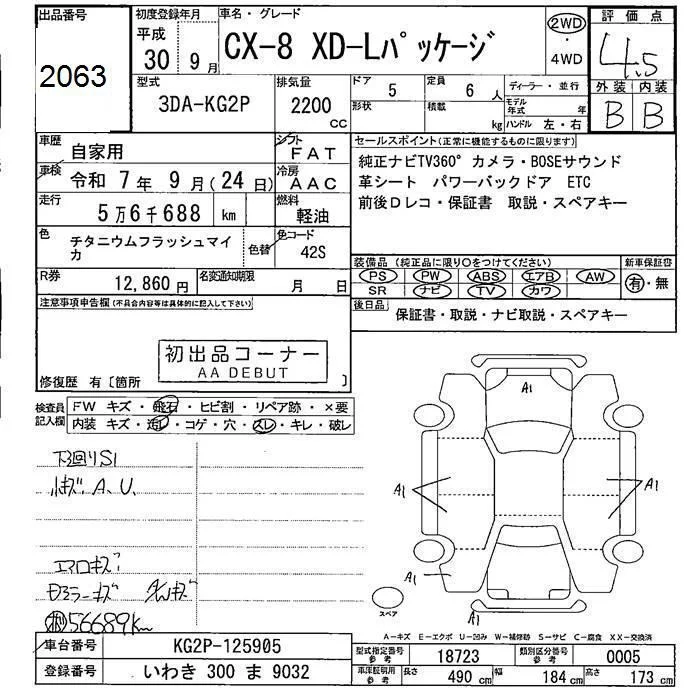 出品番号
2063
初度登録年月
平成
30 年 9 月
車名・グレード
CX-8 XD-Lパッケージ
2WD
4WD
評価点
4.5
外装 内装
B B
型式
3DA-KG2P
排気量
2200
CC
ドア
5
形状
定員
6 人
積載
kg
ディーラー・並行
モデル年式 年
ハンドル 左・右
車歴
自家用
シフト
FAT
車検
令和 7 年 9 月 (24 日)
冷房
AAC
走行
5 万 6 千 688 km
燃料
軽油
色
チタニウムフラッシュマイカ
色替
色コード
42S
R券
12,860 円
名変通知期限
月 日
セールスポイント(正常に機能するものに限ります)
純正ナビTV360°カメラ・BOSEサウンド
革シート パワーバックドア ETC
前後Dレコ・保証書 取説・スペアキー
装備品(純正品に限り○をつけてください)
PS PW ABS エアB AW
SR ナビ TV カワ
新車保証書
有・無
後日品
保証書・取説・ナビ取説・スペアキー
注意事項申告欄(不具合内容等は具体的に記入して下さい)
初出品コーナー
AA DEBUT
修復歴 有〔箇所 〕
検査員記入欄
FW キズ・飛石・ヒビ割・リペア跡・×要
内装 キズ・汚レ・コゲ・穴・スレ・キレ・破レ
下廻りS1
小キズ A、U、
エアロキズ
ドアミラーキズ
56689km
A1
A1
A1
A1
スペア
A-キズ E-エクボ U-凹み W-補修跡 S-サビ C-腐食 XX-交換済
車台番号
KG2P-125905
登録番号
いわき 300 ま 9032
型式指定番号
参考
18723
類別区分番号
参考
0005
車庫証明用
参考
長さ 490 cm 幅 184 cm 高さ 173 cm